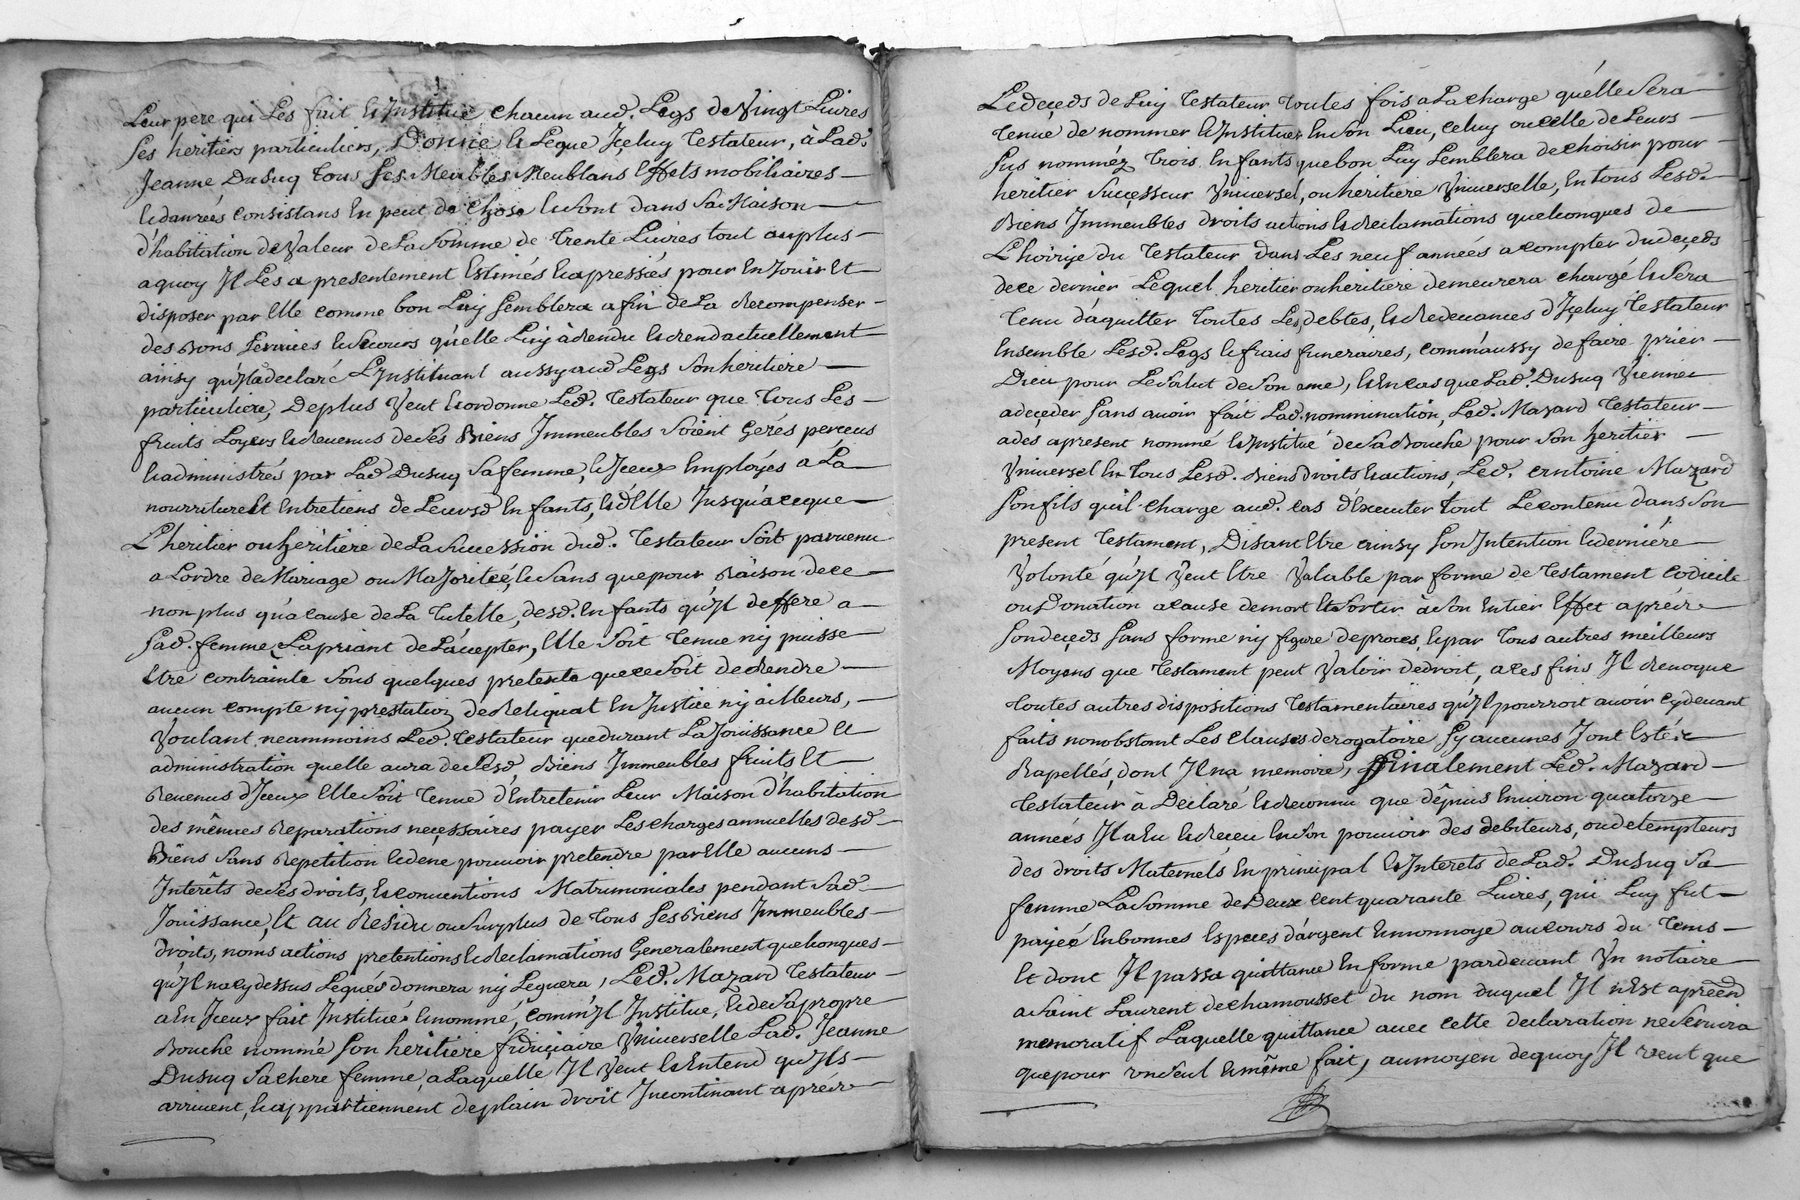 Leur pere qui Les fait & Institue chacun aud. Legs de Vingt Livres
ses heritiers particuliers, Donne & Legue Içeluy Testateur, à Lad.
Jeanne Dusuq tous ses Meubles Meublans Effets mobiliaires
& danrées consistans En peut de chose & sont dans sa Maison
d'habitation de Valeur de La somme de trente Livres tout au plus
a quoy Il Les a presentement Estimés & apressiés pour En Jouir Et
disposer par Elle comme bon Luy semblera a fin de La Recompenser
des Bons services & secours qu'elle Luy à rendu & rend actuellement
ainsy qu'Il a declaré L'Instituant aussy aud Legs son heritiere
particuliere, De plus Veut & ordonne Led. Testateur que tous Les
fruits Loyers & Revenus de ses Biens Immeubles soient Gerés perceus
& administrés par Lad Dusuq sa femme, & Iceux Employés a La
nourriture Et Entretiens de Leursd Enfants, & d'Elle Jusqu'a ceque
L'heritier ou heritiere de La succession dud. Testateur soit parvenu
a Lordre de Mariage ou Majoriteé, & sans que pour Raison de ce
non plus qu'a cause de La Tutelle, desd. Enfants qu'Il deffere a
sad. femme La priant de L'accepter, Elle soit tenue ny puisse
Etre contrainte sous quelques pretexte que ce soit de Rendre
aucun compte ny prestation de Reliquat En Justice ny ailleurs,
Voulant neammoins Led. Testateur que durant La Jouissance Et
administration quelle aura de sesd Biens Immeubles fruits Et
Revenus d'Iceux Elle soit tenue d'Entretenir Leur Maison d'habitation
des mêmes Reparations neçessaires payer Les charges annuelles desd
Biens sans Repetition & de ne pouvoir pretendre par Elle aucuns
Interêts de ses droits, & conventions Matrimoniales pendant sad
Jouissance, Et au Residu ou surplus de tous ses Biens Immeubles
Droits, noms actions pretentions & Reclamations Generalement quelconques
qu'Il na cy dessus Legués donnera ny Leguera, Led. Mazard Testateur
a En Iceux fait Institué & nommé, comm'Il Institue, & de sa propre
Bouche nommé son heritiere fiduçiaire Universelle Lad. Jeanne
Dusuq sa chere femme, a Laquelle Il Veut & Entend qu'Ils
arrivent, & appartiennent de plain droit Incontinant aprér
Ledeçeds de Luy Testateur toutes fois a La charge qu'elle sera
tenue de nommer & Instituer En son Lieu, celuy ou celle de Leurs
sus nomméz trois Enfants que bon Luy semblera de choisir pour
heritier successeur Universel, ou heritiere Universelle, En tous Lesd.
Biens Immeubles droits actions & Reclamations quelconques de
L'hoirye du Testateur dans Les neuf années a compter dudeçeds
de ce dernier Lequel heritier ou heritiere demeurera chargé & sera
tenu d'aquitter toutes Les debtes, & Redevances d'Içeluy Testateur
Ensemble Lesd. Legs & frais funeraires, comm'aussy de faire prier
Dieu pour Le salut de son ame, & En cas que Lad. Dusuq Vienne
a deçeder sans avoir fait Lad. nommination, Led. Mazard Testateur
a des apresent nommé & Institué de sa Bouche pour son heritier
Universel En tous Lesd. Biens droits & actions, Led. Antoine Mazard
son fils qu'il charge aud. cas d'Executer tout Le contenu dans son
present Testament, Disant Etre ainsy son Intention & derniére
Volonté qu'Il Veut Etre Valable par forme de Testament Codicile
ou Donation a cause de mort & sortir à son Entier Effet aprér
son deçeds sans forme ny figure de proces, & par tous autres meilleurs
Moyens que Testament peut Valoir de droit, a ces fins Il Revoque
toutes autres dispositions Testamentaires qu'Il pourroit avoir cy devant
faits nonobstant Les clauses derogatoire sy aucunes Y ont Esté
Rapellés, dont Il na memoire, Finalement Led. Mazard
Testateur à Declaré & Reconnu que dépuis Environ quatorze
années Il a Eu & Receu En son pouvoir des debiteurs, ou detempteurs
des droits Maternels En principal & Interets de Lad. Dusuq sa
femme La somme de Deux cent quarante Livres, qui Luy fut
payeé En bonnes Especes d'argent & monnoye au cours du Tems
Et dont Il passa quittance En forme pardevant Un notaire
a Saint Laurent de Chamousset du nom duquel Il n'Est apreend
memoratif Laquelle quittance avec cette declaration ne servira
que pour un seul & même fait, au moyen de quoy Il veut que